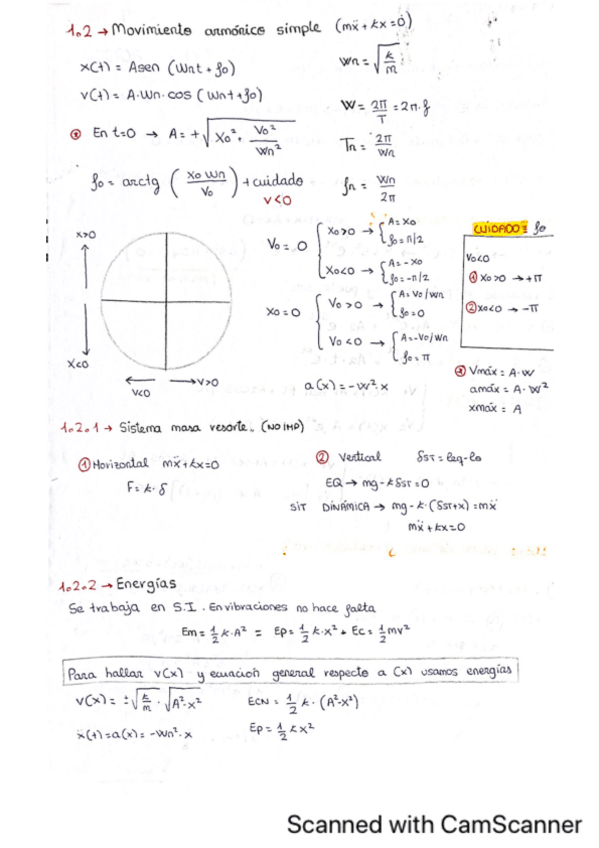 1.2 → Movimiento armónico simple (mẍ + kx = 0)
x(t) = A sen (Wnt + φ0)
Wn = √(k/m)
v(t) = A·Wn·cos (Wnt + φ0)
W = 2π/T = 2π·f
En t=0 → A = +√(X0² + V0²/Wn²)
Tn = 2π/Wn
φ0 = arctg (X0 Wn / V0) + cuidado
V<0
fn = Wn/2π
X>0
V0 = 0 { X0>0 → { A = X0
φ0 = π/2
X0<0 → { A = -X0
φ0 = -π/2
CUIDADO: φ0
V0<0
① X0>0 → +π
② X0<0 → -π
X0 = 0 { V0>0 → { A = V0/Wn
φ0 = 0
V0<0 → { A = -V0/Wn
φ0 = π
X<0
V<0
V>0
a(x) = -W²x
Vmáx = A·W
amáx = A·W²
xmáx = A
1.2.1 → Sistema masa resorte. (NO IMP)
① Horizontal mẍ + kx = 0
F = k·δ
② Vertical δST = leq - l0
EQ → mg - kδST = 0
SIT DINÁMICA → mg - k·(δST + x) = mẍ
mẍ + kx = 0
1.2.2 → Energías
Se trabaja en S.I. En vibraciones no hace falta
Em = 1/2 k·A² = Ep = 1/2 k·x² + Ec = 1/2 mv²
Para hallar v(x) y ecuación general respecto a (x) usamos energías
V(x) = ±√(k/m) · √(A²-x²)
ECN = 1/2 k·(A²-x²)
ẍ(t) = a(x) = -Wn²·x
Ep = 1/2 kx²
Scanned with CamScanner